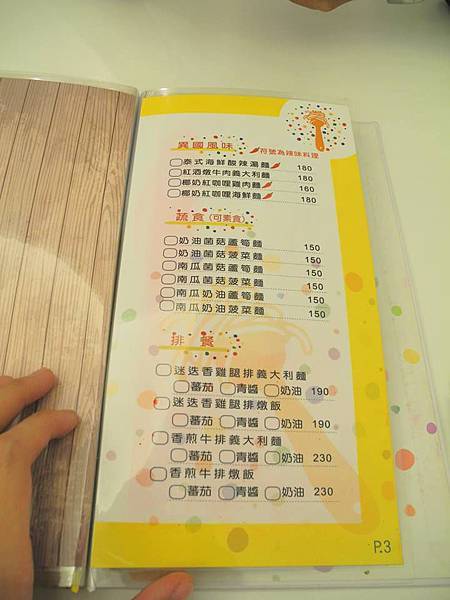 異國風味 符號為辣味料理
泰式海鮮酸辣湯麵 180
紅酒燉牛肉義大利麵 180
椰奶紅咖哩雞肉麵 160
椰奶紅咖哩海鮮麵 180
蔬食(可素食)
奶油菌菇蘆筍麵 150
奶油菌菇菠菜麵 150
南瓜菌菇蘆筍麵 150
南瓜菌菇菠菜麵 150
南瓜奶油蘆筍麵 150
南瓜奶油菠菜麵 150
排餐
迷迭香雞腿排義大利麵
蕃茄 青醬 奶油 190
迷迭香雞腿排燉飯
蕃茄 青醬 奶油 190
香煎牛排義大利麵
蕃茄 青醬 奶油 230
香煎牛排燉飯
蕃茄 青醬 奶油 230
P.3